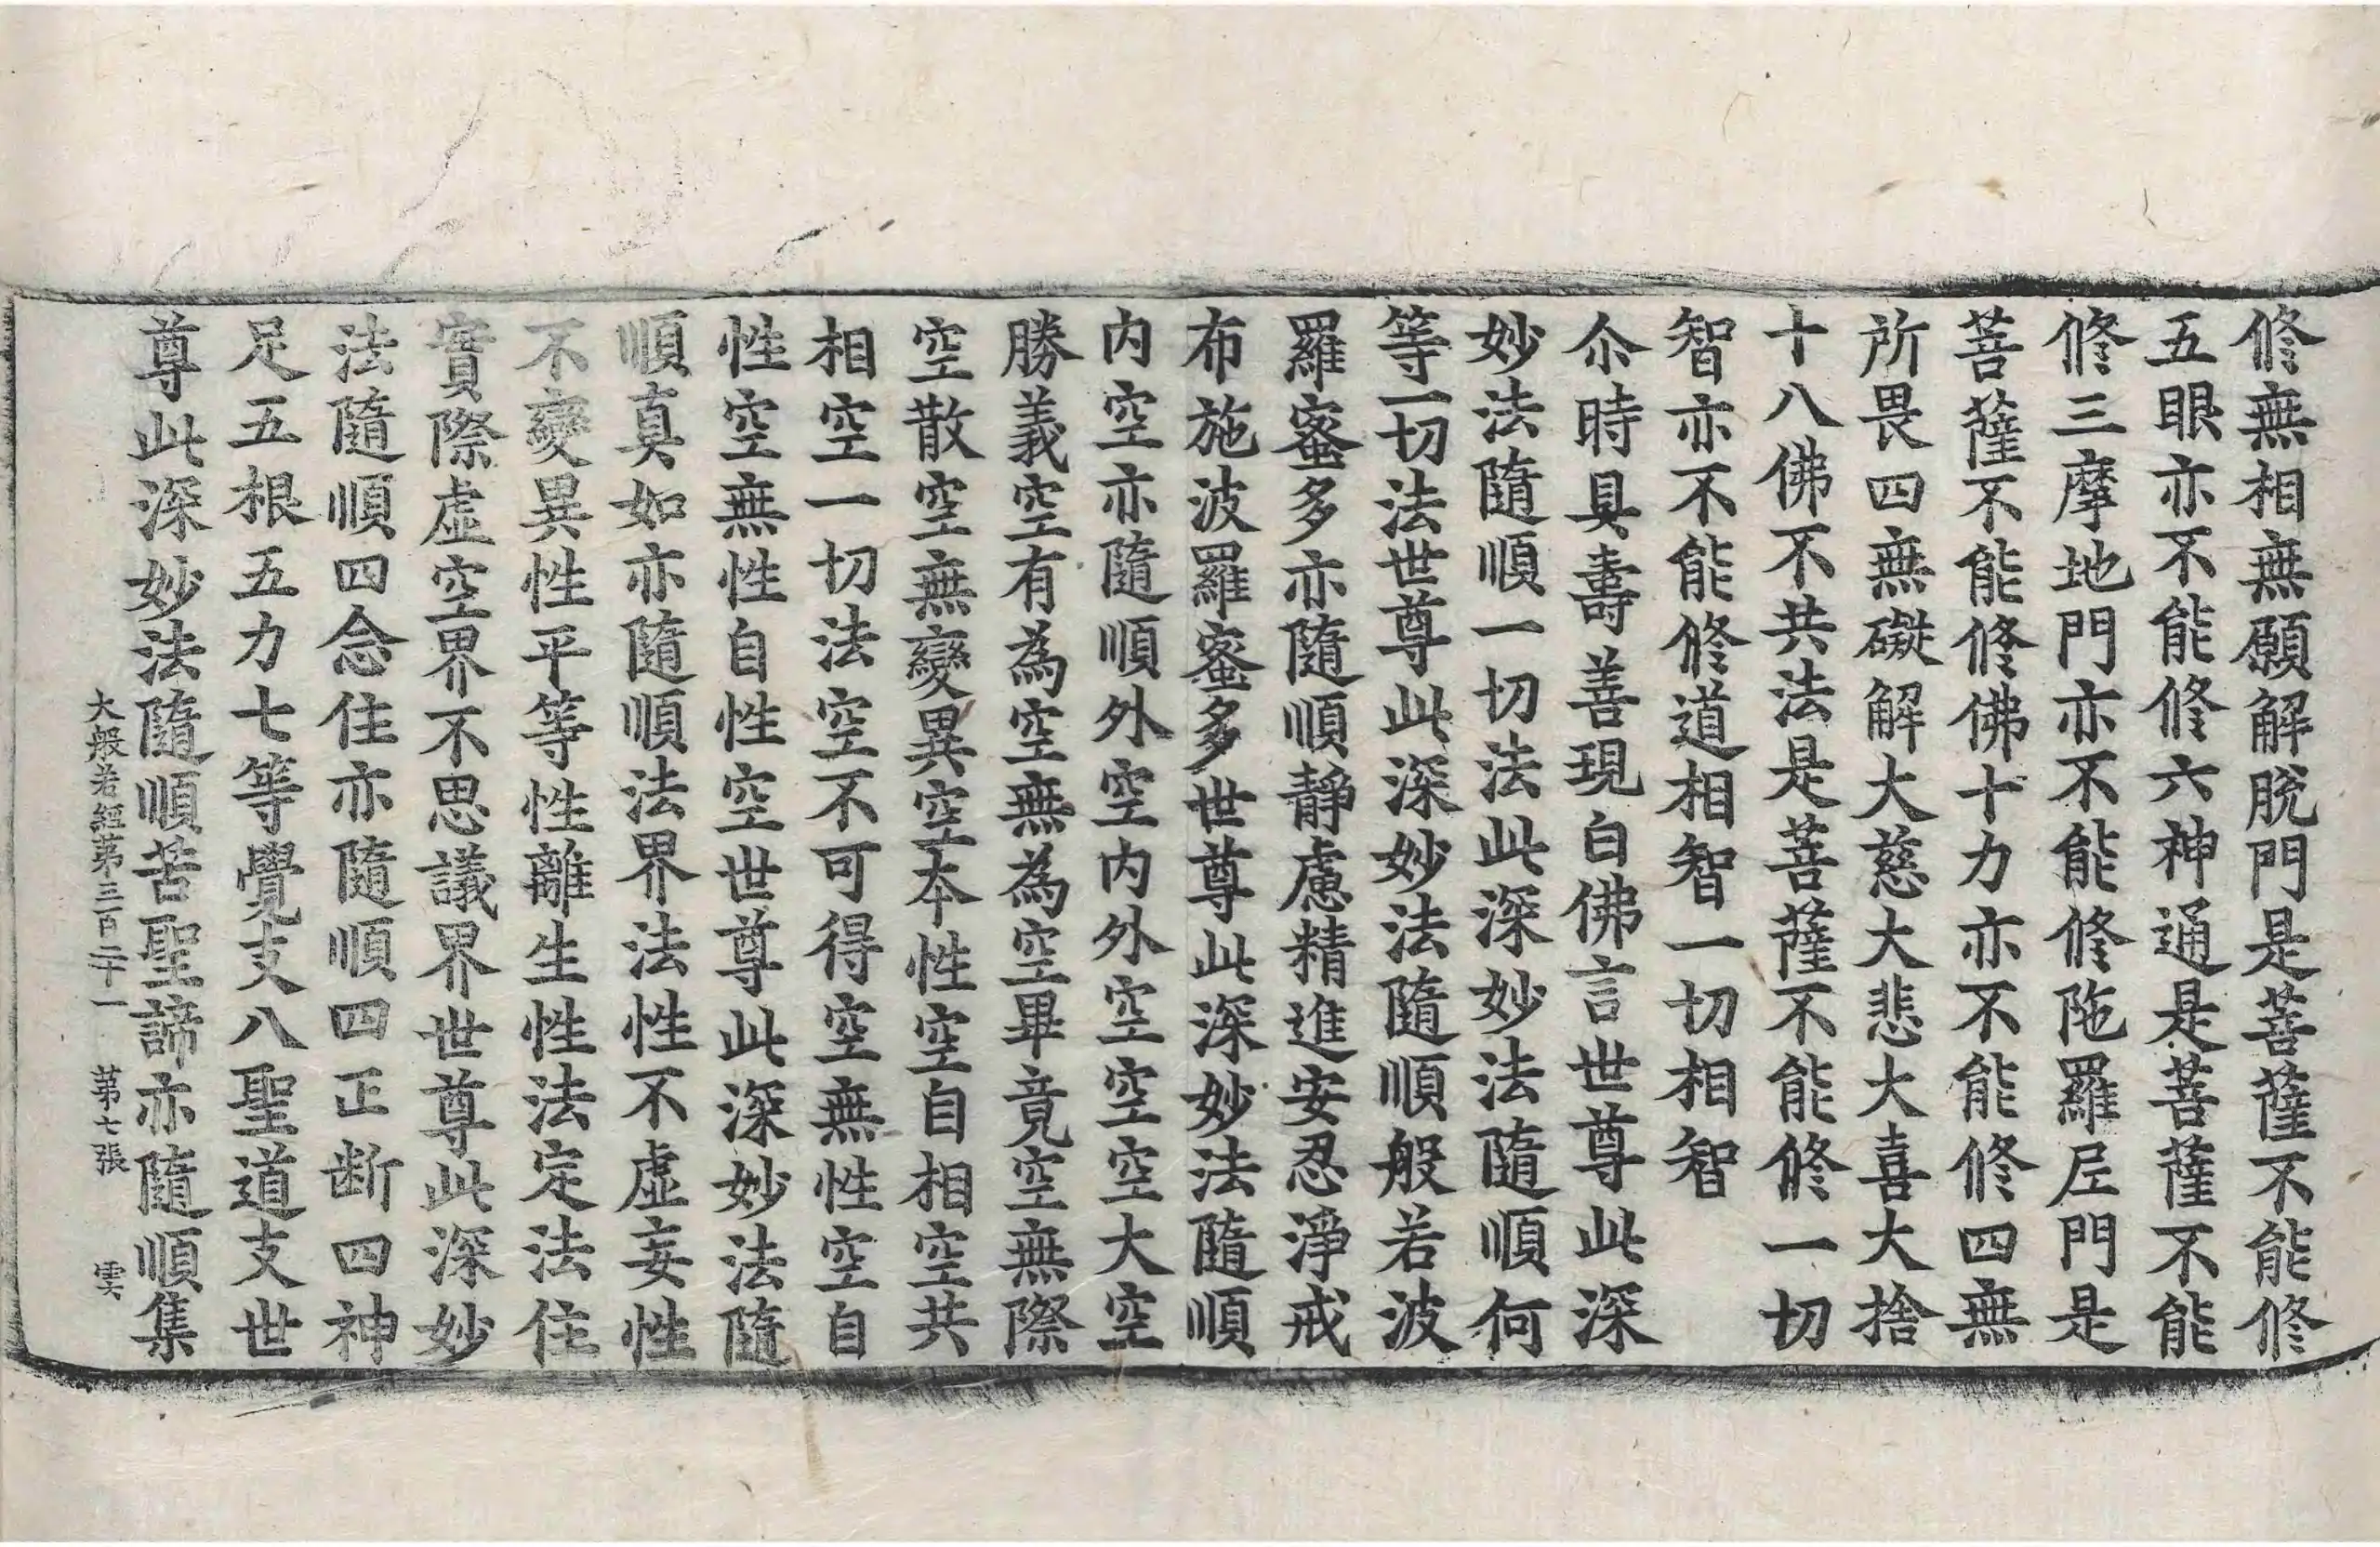 修無相無願解脫門是菩薩不能修
五眼亦不能修六神通是菩薩不能
修三摩地門亦不能修陁羅尼門是
菩薩不能修佛十力亦不能修四無
所畏四無礙解大慈大悲大喜大捨
十八佛不共法是菩薩不能修一切
智亦不能修道相智一切相智
尒時具壽善現白佛言世尊此深
妙法隨順一切法此深妙法隨順何
等一切法世尊此深妙法隨順般若波
羅蜜多亦隨順靜慮精進安忍淨戒
布施波羅蜜多世尊此深妙法隨順
内空亦隨順外空内外空空空大空
勝義空有為空無為空畢竟空無際
空散空無變異空本性空自相空共
相空一切法空不可得空無性空自
性空無性自性空世尊此深妙法隨
順真如亦隨順法界法性不虛妄性
不變異性平等性離生性法定法住
實際虛空界不思議界世尊此深妙
法隨順四念住亦隨順四正断四神
足五根五力七等覺支八聖道支世
尊此深妙法隨順苦聖諦亦隨順集
大般若經第三百二十一 第七張 雲